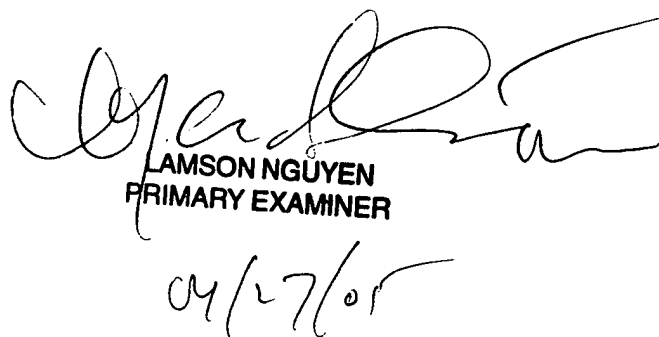 LAMSON NGUYEN
PRIMARY EXAMINER
04/27/05